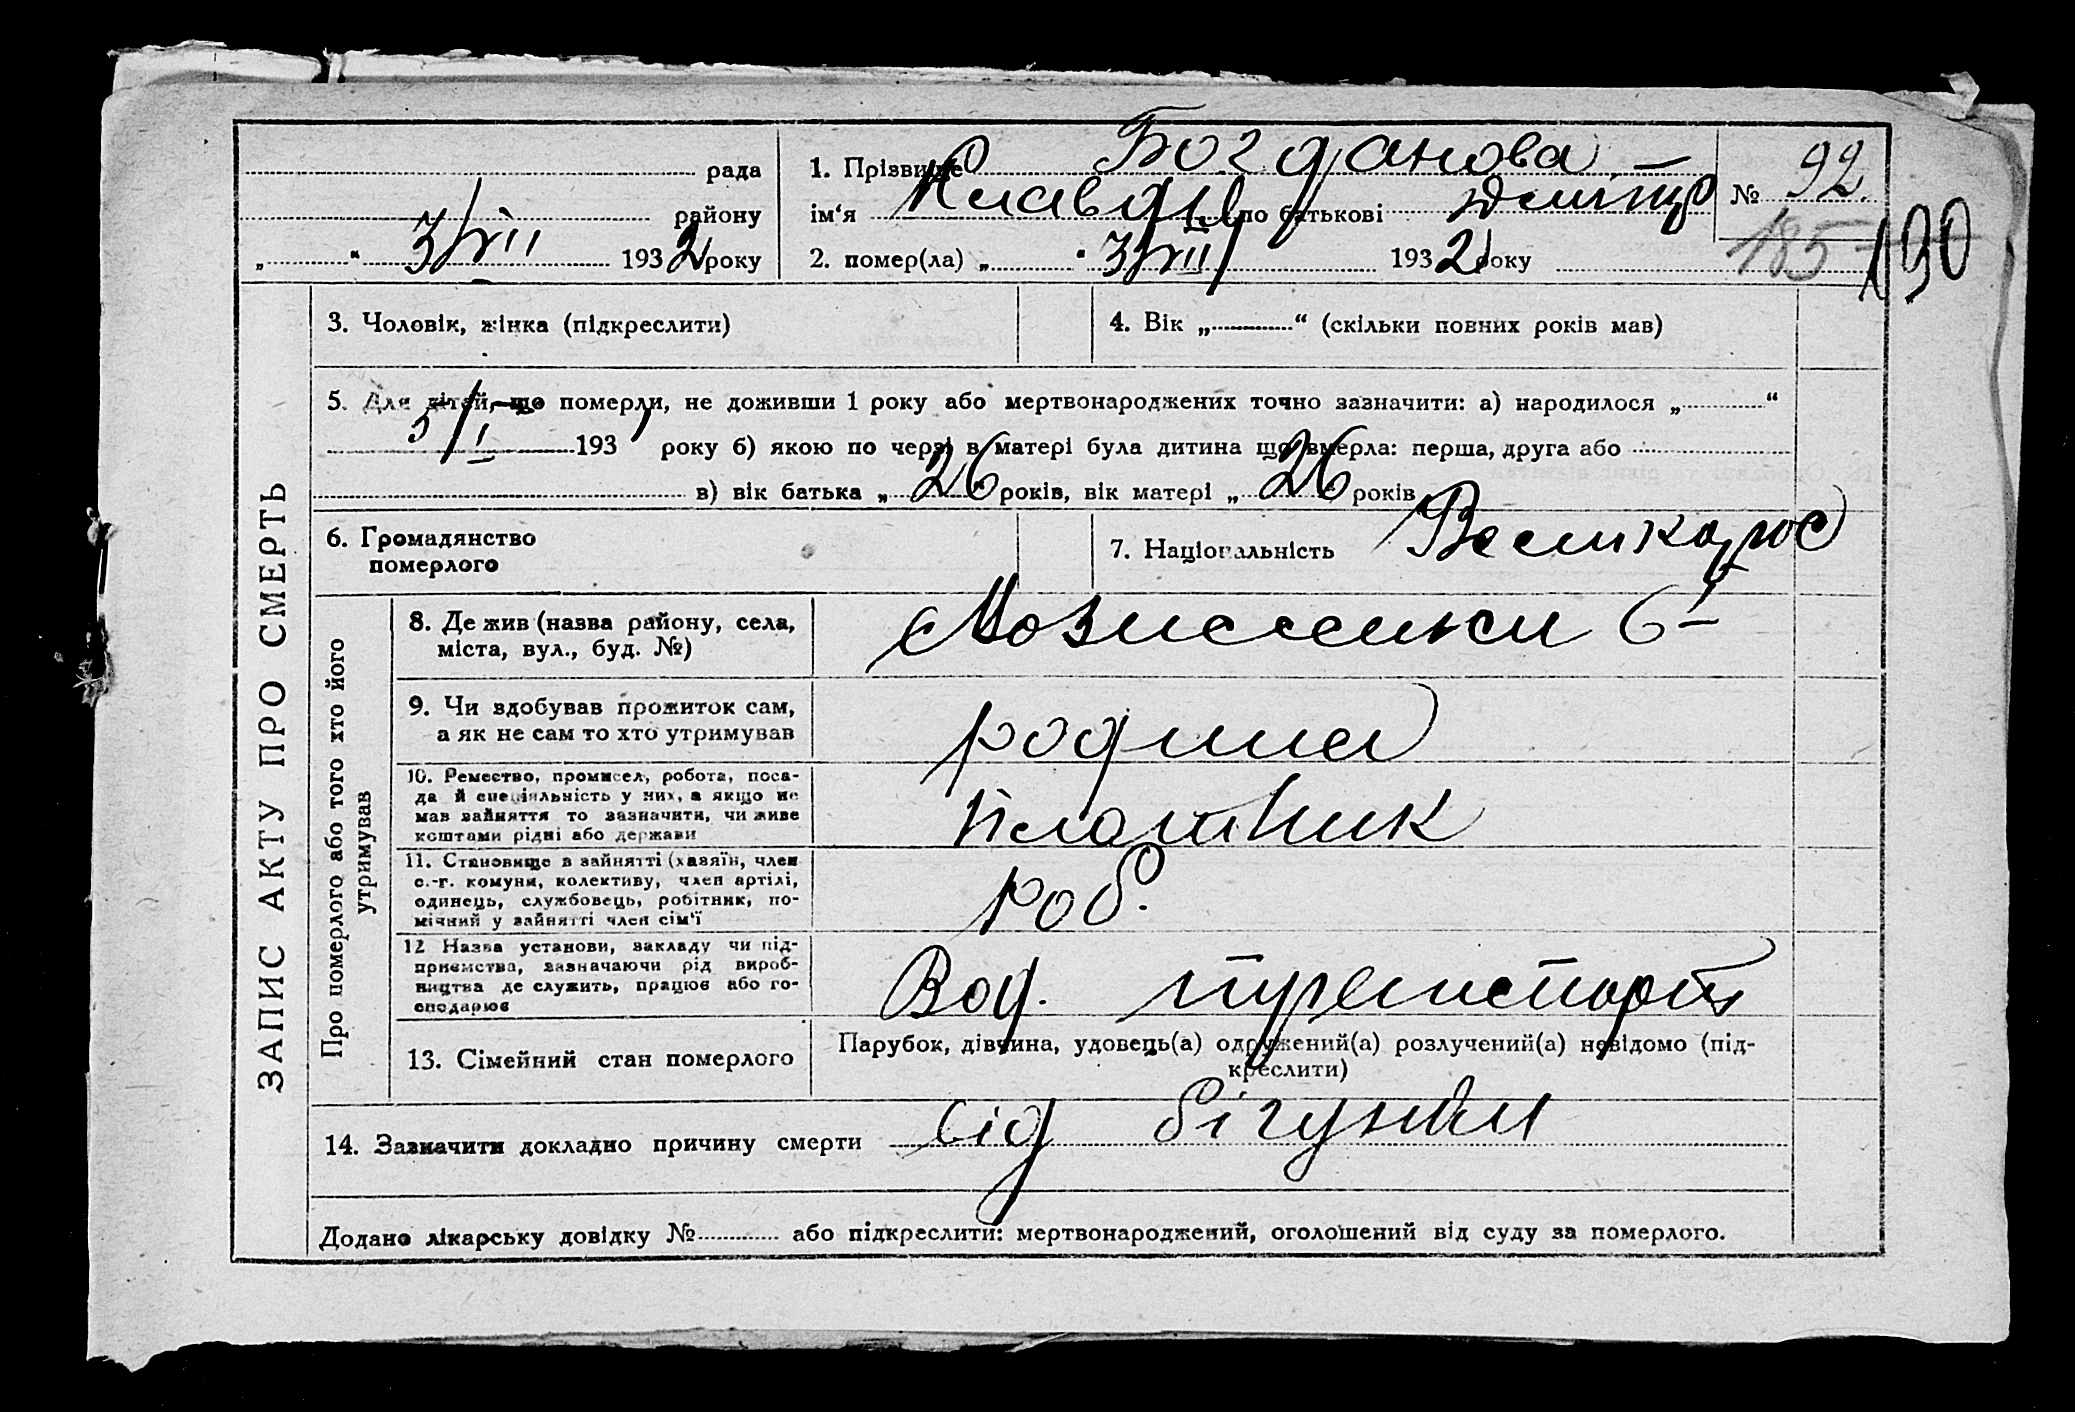 рада
району
„ “ 3/VII 1932 року
1. Прізвище Богданова
ім‘я Клавдія по батькові Дмітр
2. помер(ла) „ “ 3/VII 1932 року
№ 92.
185
190
ЗАПИС АКТУ ПРО СМЕРТЬ
3. Чоловік, жінка (підкреслити)
4. Вік „ “ (скільки повних років мав)
5. Для дітей, що померли, не доживши 1 року або мертвонароджених точно зазначити: а) народилося „ “
5/I 193 року б) якою по черзі в матері була дитина що вмерла: перша, друга або
в) вік батька „ 26 “ років, вік матері „ 26 “ років
6. Громадянство
померлого
7. Національність Великорос
Про померлого або того хто його
утримував
8. Де жив (назва району, села,
міста, вул., буд. №)
6
9. Чи здобував прожиток сам,
а як не сам то хто утримував
родина
10. Ремество, промисел, робота, поса-
да й спеціяльність у них, а якщо не
мав зайняття то зазначити, чи живе
коштами рідні або держави
платник
11. Становище в зайнятті (хазяїн, член
с.-г. комуни, колективу, член артілі,
одинець, службовець, робітник, по-
мічний у зайнятті член сім‘ї
роб.
12 Назва установи, закладу чи під-
приємства, зазначаючи рід вироб-
ництва де служить, працює або го-
сподарює
Вод. транспорт
13. Сімейний стан померлого
Парубок, дівчина, удовець(а) одружений(а) розлучений(а) невідомо (під-
креслити)
14. Зазначити докладно причину смерти від бігунки
Додано лікарську довідку № або підкреслити: мертвонароджений, оголошений від суду за померлого.